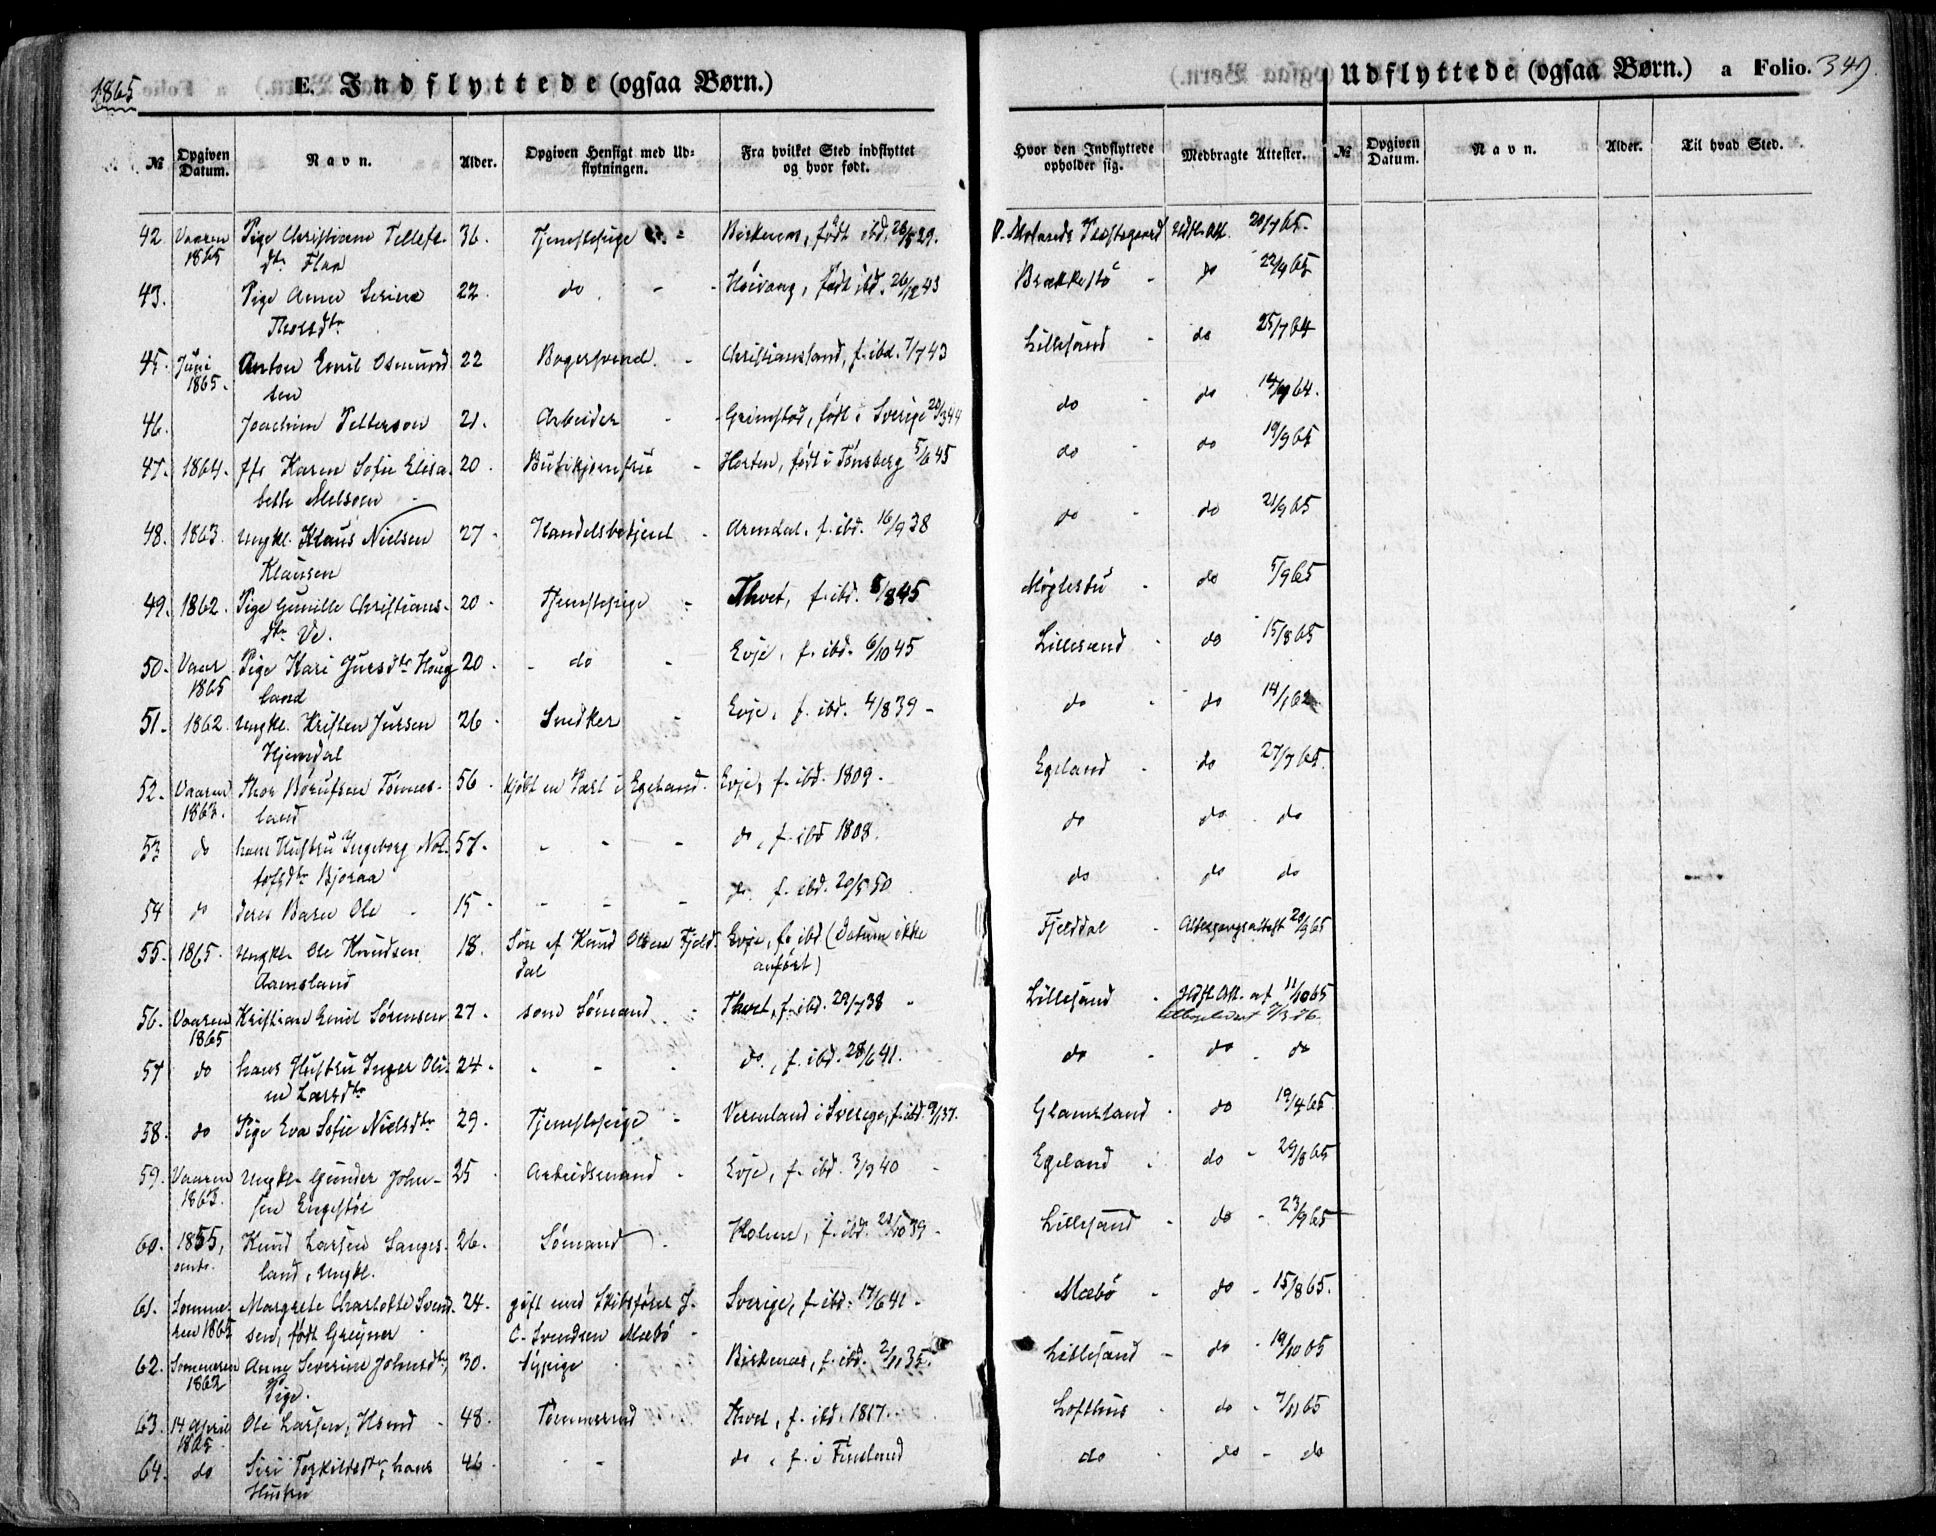 1865
E. Indflyttede (ogsaa Børn.)
Udflyttede (ogsaa Børn.) a Folio. 349.
№ Opgiven Datum. Navn. Alder. Opgiven Hensigt med Udflytningen. Fra hvilket Sted indflyttet og hvor født. Hvor den Indflyttede opholder sig. Medbragte Attester. № Opgiven Datum. Navn. Alder. Til hvad Sted.
42. Vaaren Pige Christiane Tellefs- 36. Tjenestepige Birkenes, født ibd. 26/8 29. V. Molands Præstegaard Indfl. Att. 20/7 65.
1865 dtr Flaa
43. Pige Anne Serine 22. do - - Høivaag, født ibd. 26/12 43 Brækkestø - do 22/9 65
Thorsdtr
45. Juni Anton Emil Osmund- 22 Bagersvend. - Christiansand, f. ibd. 7/7 43 Lillesand - do 25/7 64
1865. sen
46. Joachim Petterson 21. Arbeider - Grimstad, født i Sverige 20/3 44 do do 14/9 64.
47. 1864. Karen Sofie Elisa- 20. Butikjomfru - Horten, født i Tønsberg 5/6 45 do - do 19/9 65
bette Melsom
48. 1863. Ungkl. Klaus Nielsen 27 - Handelsbetjent - Arendal. f. ibd. 16/9 38 do - do 21/9 65
Klausen
49. 1862. Pige Gunille Christians- 20 - Tjenestepige - Thvet, f. ibd. 5/8 45 Møglestu - do 5/9 65
dtr Ve.
50. Vaar Pige Kari Jursdtr Houg- 20. - do - Evje, f. ibd. 6/10 45 Lillesand - do 15/8 65
1865 land
51. 1862. Ungkl. Kristen Jursen 26 - Snedker - Evje, f. ibd. 4/8 39 - do - do 14/1 62
Hjemdal
52. Vaaren Thor Borufsen Tønnes- 56. kjøbt en Part i Egeland. Evje, f. ibd. 1809. Egeland - do 27/7 65.
1863. land
53 do hans Hustru Ingeborg Not- 57. - - - do, f. ibd 1808. do do do
tofsdtr Bjoraa
54 do deres Barn Ole - 15 - - - - do f. ibd. 20/5 50 do do do
55. 1865. Ungkl. Ole Knudsen 18. Søn af Knud Olsen Fjeld- Evje, f. ibd (Datum ikke Fjelddal - Altergangsattest 20/9 65
Aamsland dal anført)
56. Vaaren Kristian Emil Sørensen 27. som Sømand - Thvet, f. ibd. 22/7 38 - Lillesand - Indfl. Att. af 11/10 65
1865
57 do hans Hustru Inger Oli- 24 - - - - do, f. ibd. 28/6 41. do - do - do
ne Larsdtr
58. do Pige Eva Sofie Nielsdtr 29. Tjenestepige - Vermland i Sverige, f. ibd. 9/1 37. Glamsland - do 19/4 65
59. Vaaren Ungkl. Gunder John- 25 - Arbeidsmand - Evje, f. ibd. 3/3 40 - Egeland - do - 29/8 65
1863. sen Engestøl
60. 1855, Knud Larsen Sanges- 26. Sømand - Holme, f. ibd. 28/10 39 - Lillesand - do - 23/9 65
omtr. land, Ungkl.
61. Somme- Margrete Charlotte Svend- 24. gift med Skibsfører J. Sverige, f. ibd. 17/6 41 - Mæbø - do - 15/8 65.
ren 1865 sen, født Greyner - C. Svendsen Mæbø -
62. Sommeren Anne Severine Johnsdtr, 30. Sypige - Birkenes, f. ibd. 2/11 35. Lillesand - do - 19/10 65
1862 Pige.
63. 14 April Ole Larsen, - 48. Tømmermd Thvet, f. ibd. 1817. Lofthus - do - 7/11 65
1865
64. do Siri Torkildsdtr, hans 46 - - do, f. i Finsland do - do - do
Hustru